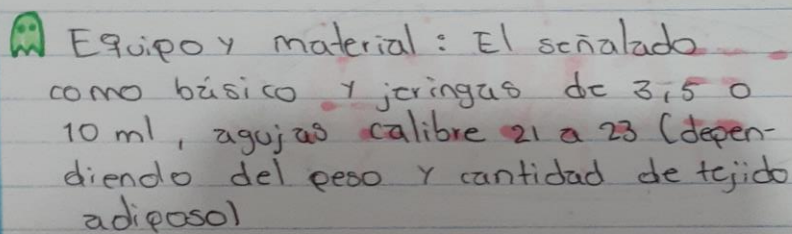 Equipo y material: El señalado
como básico y jeringas de 3,5 o
10 ml, agujas calibre 21 a 23 (depen-
diendo del peso y cantidad de tejido
adiposo)